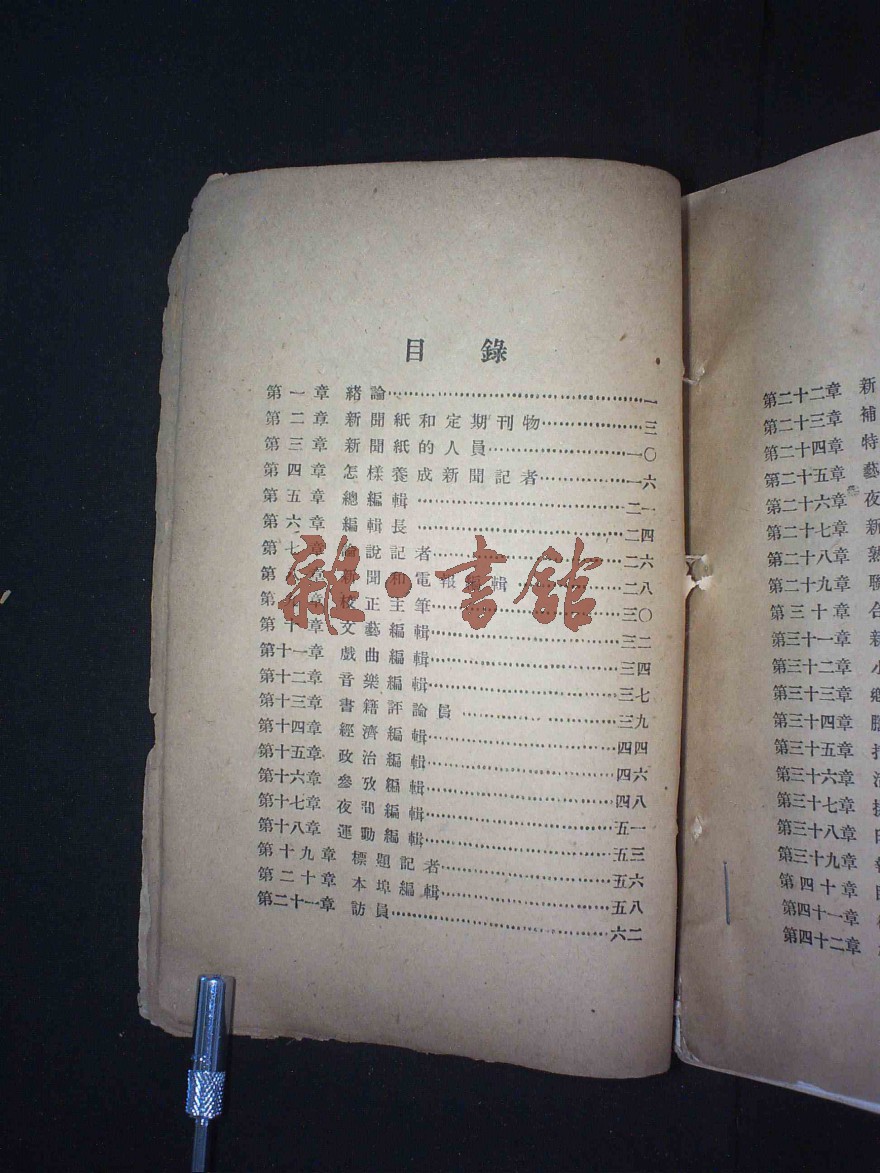 目錄
第一章 緒論⋯⋯一
第二章 新聞紙和定期刊物⋯⋯三
第三章 新聞紙的人員⋯⋯一〇
第四章 怎樣養成新聞記者⋯⋯一六
第五章 總編輯⋯⋯二一
第六章 編輯長⋯⋯二四
第七章 論說記者⋯⋯二六
第八章 新聞和電報編輯⋯⋯二八
第九章 校正主筆⋯⋯三〇
第十章 文藝編輯⋯⋯三二
第十一章 戲曲編輯⋯⋯三四
第十二章 音樂編輯⋯⋯三七
第十三章 書籍評論員⋯⋯三九
第十四章 經濟編輯⋯⋯四四
第十五章 政治編輯⋯⋯四六
第十六章 參攷編輯⋯⋯四八
第十七章 夜間編輯⋯⋯五一
第十八章 運動編輯⋯⋯五三
第十九章 標題記者⋯⋯五六
第二十章 本埠編輯⋯⋯五八
第二十一章 訪員⋯⋯六二
雜·書館
第二十二章 新
第二十三章 補
第二十四章 特
第二十五章 藝
第二十六章 夜
第二十七章 新
第二十八章
第二十九章 聯
第三十章 合
第三十一章 新
第三十二章 小
第三十三章
第三十四章
第三十五章
第三十六章
第三十七章
第三十八章
第三十九章
第四十章
第四十一章
第四十二章